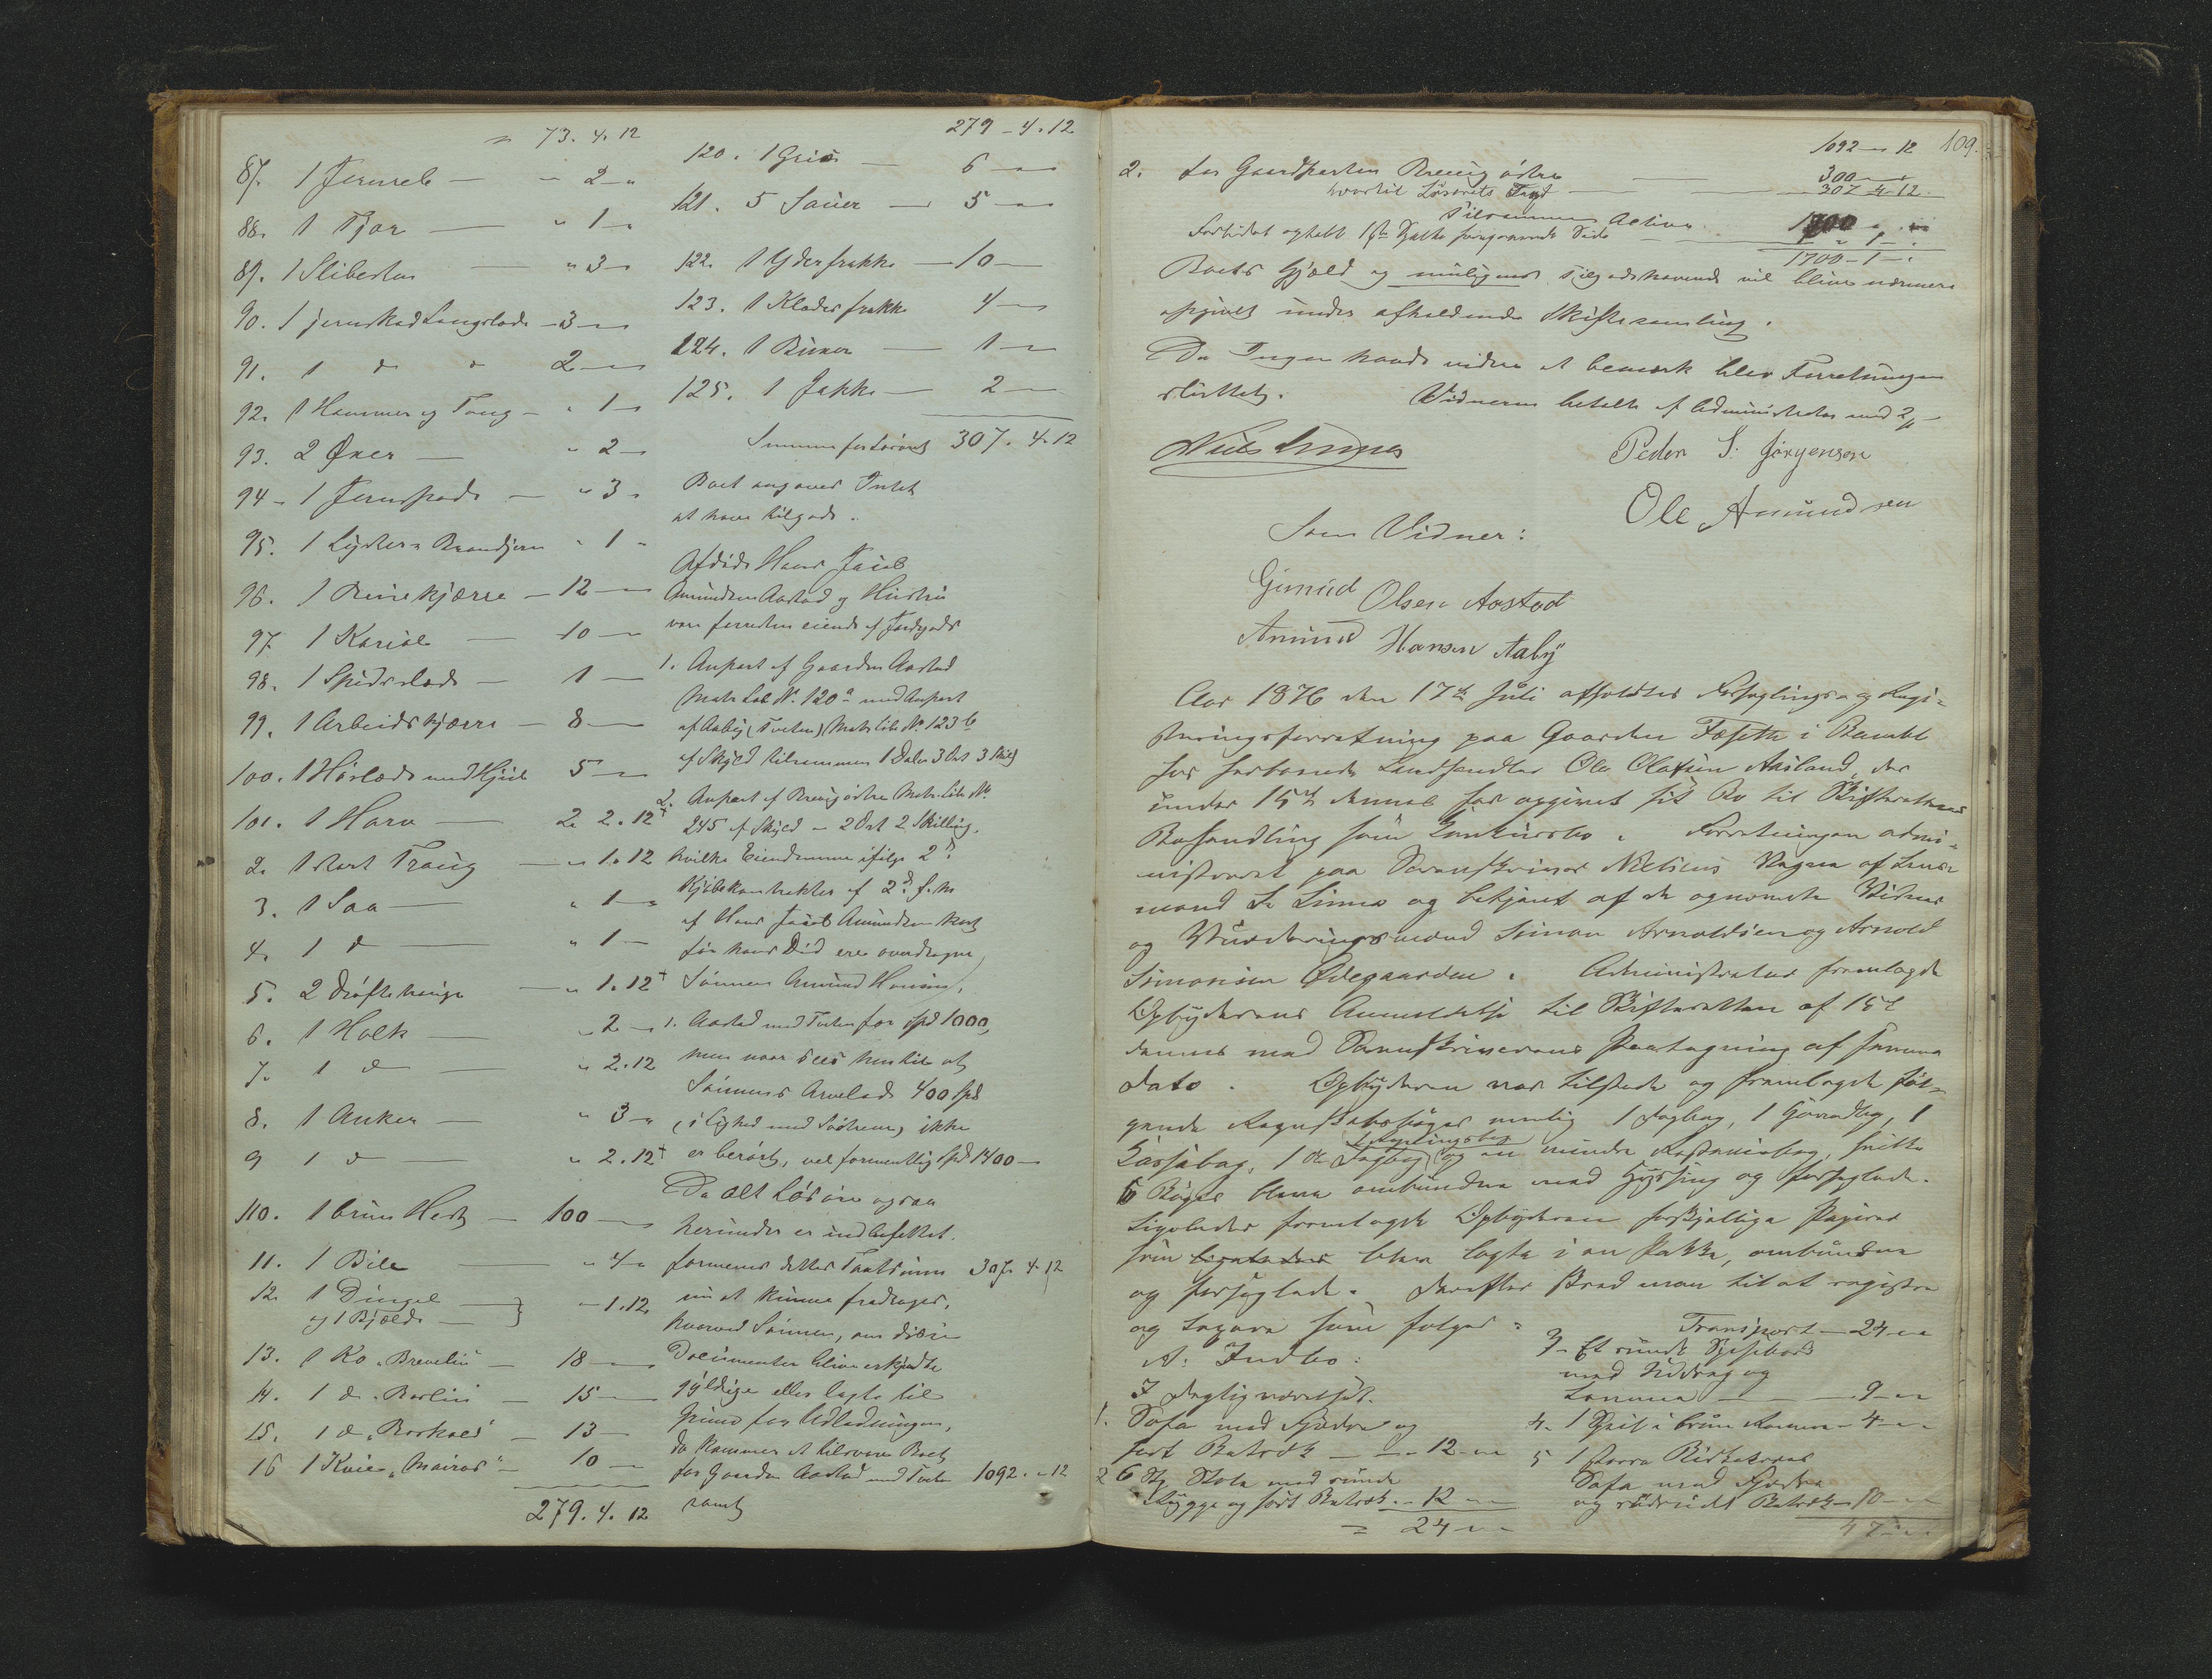 " 73. 4. 12
87. 1 Jernreb — " 2 "
88. 1 Tjor — " 1 "
89. 1 Slibesten — " 3 "
90. 1 jernskod Langslæde — 3 —
91. 1 do do 2 —
92. 1 Hammer og Tang — " 1 —
93. 2 Øxer — " 2 —
94 - 1 Jernspade — " 3 "
95. 1 Lyster = Brandjern " 1 "
96. 1 Reisekjærre — 12 —
97. 1 Kariol — 10 —
98. 1 Spidsslæde — 1 —
99. 1 Arbeidskjærre — 8 —
100. 1 Høslæde med Hjul 5 —
101. 1 Harv — 2. 2. 12
2. 1 stort Traug — " 1. 12
3. 1 Saa — " 1 "
4. 1 do — " 1 —
5. 2 Drøftetrauge — " 1. 12
6. 1 Holk — " 2 —
7. 1 do — " 2. 12
8. 1 Anker — " 3 "
9 1 do — " 2. 12
110. 1 brun Hest — 100 —
11. 1 Bile — " 4 "
12. 1 Dingel
og 1 Bjelde — } " 1. 12
13. 1 Ko "Brevelin" — 18 —
14. 1 do "Roslin" — 15 —
15. 1 do "Roskaes" — 13 —
16 1 Kvie "Mairos" — 10 —
279. 4. 12
279 - 4. 12
120. 1 Gris — 6 —
121. 5 Sauer — 5 —
122. 1 Yderfrakke — 10 —
123. 1 Klædesfrakke 4 —
124. 1 Buxer — 1 —
125. 1 Jakke — 2 —
Summa for Løsøret 307. 4. 12
Boet angaves Intet
at have tilgode.
Afdøde Hans Jacob
Amundsen Aastad og Hustru
vare forresten eiende af Jordgods
1. Anpart af Gaarden Aastad
Matr Løb No. 120a med Anpart
af Aaby (Tveten) Matr Løb No 123b
af Skyld tilsammen 1 Daler 3 Ort 3 Skill
2. Anpart af Brevig østre Matr. Løb No.
245 af Skyld — 2 Ort 2 Skilling.
hvilke Eiendomme ifølge 2de
Kjøbekontrakter af 2d f. M.
af Hans Jacob Amundsen kort
før hans Død ere overdragne
Sønnen Amund Hansen,
1. Aastad med Tveten for Spd 1000,
men naar sees hen til at
Sønnens Arvelod 400 Spd
(i Lighed med Søstrene) ikke
er berørt, vel formentlig Spd 1400 —
Da alt Løsøre ogsaa
herunder er indbefattet.
formenes dettes Taxtsum 307. 4. 12
nu at kunne fradrages,
hvorved Sønnen, om disse
Documenter bliver erkjendte
gyldige eller lagte til
Grund for Udlodningen,
da kommer at tilsvare Boet
for Gaarden Aastad med Tveten 1092. " 12
samt
109.
1092 — " 12
2. for Gaardparten Brevig østre — 300 —
hvortil Løsørets Taxt — 307 4. 12.
Tilsammen Activa 1700 " "
Forbidet optalt 1 st. foregaaende Side — " 1 —
1700 - 1 —
Boets Gjæld og muligens Tilgodehavende vil blive nærmere
opgivet under afholdende Skiftesamling.
Da Ingen havde videre at bemærke blev Forretningen
sluttet. Vidnerne betalte af Administrator med 2 "
Peder S. Jørgensen
Ole Amundsen
Som Vidner:
Gunuld Olsen Aastad
Amund Hansen Aaby
Aar 1876 den 17de Juli afholdtes Forseglings= og Regi=
streringsforretning paa Gaarden Fæsette i Bamble
hos forboende Landhandler Ole Olafsen Aasland, der
under 15de dennes har opgivet sit Bo til Skifterettens
Behandling som Concursbo. Forretningen admi=
nistreret paa Sorenskriver Nielsens Vegne af Lens=
mand N. Linnes og betjent af de opnævnte Vidner
og Vurderingsmænd Simon Arnoldsen og Arnold
Simonsen Ødegaarden. Administrator fremlagde
Opbyderens Anmeldelse til Skifteretten af 15de
dennes med Sorenskriverens Paategning af samme
dato. Opbyderen var tilstede og fremlagde føl=
gende Regnskabsbøger nemlig 1 Dagbog, 1 Hovedbog, 1
Kassabog, 1 do Dagbog, og en mindre Restancebog, hvilke
6 Bøger bleve ombundne med Hyssing og forseglede.
Ligeledes fremlagde Opbyderen forskjellige Papirer
som bleve lagte i en Pakke, ombundne
og forseglede. Derefter skred man til at registrere
og taxere som følger:
A. Indbo:
I Dagligværelset.
1. Sofa med Fjædre og
sort Betræk — " 12 "
2 6 St. Stole med runde
Rygge og sort Betræk - 12 "
= 24 "
Transport — 24 "
3 - Et rundt Spisebord
med Udtræk og
Lemmer — 9 "
4. 1 Speil i brun Ramme - 4 "
5 1 større Birketræes
Sofa med Fjædre
og rødrudet Betræk - 10 "
47 "